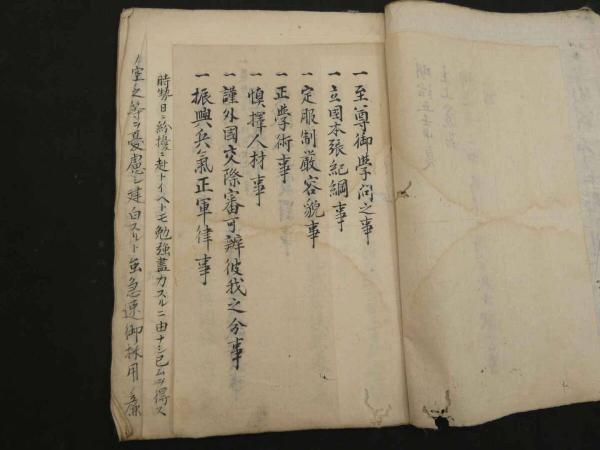 一至尊御学問之事
一立国本張紀綱事
一定服制厳容貌事
一正学術事
一慎擇人材事
一謹外國交際審可辨彼我之分事
一振興兵氣正軍律事
時勢日ニ紛擾ニ赴トイヘトモ勉強盡力スルニ由ナシ已ムヲ得ス
室之等ヲ憂慮シ建白スルト虽急速御採用